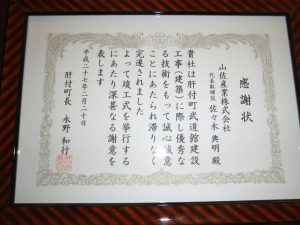 感謝状
山佐産業株式会社
代表取締役 佐々木 典明 殿
貴社は肝付町武道館建設
工事(建築)に際し優秀な
る技術をもって誠心誠意
ことにあたられ滞りなく
完遂されました
よって竣工式を挙行する
にあたり深甚なる謝意を
表します
平成二十七年二月二十日
肝付町長 永野 和行